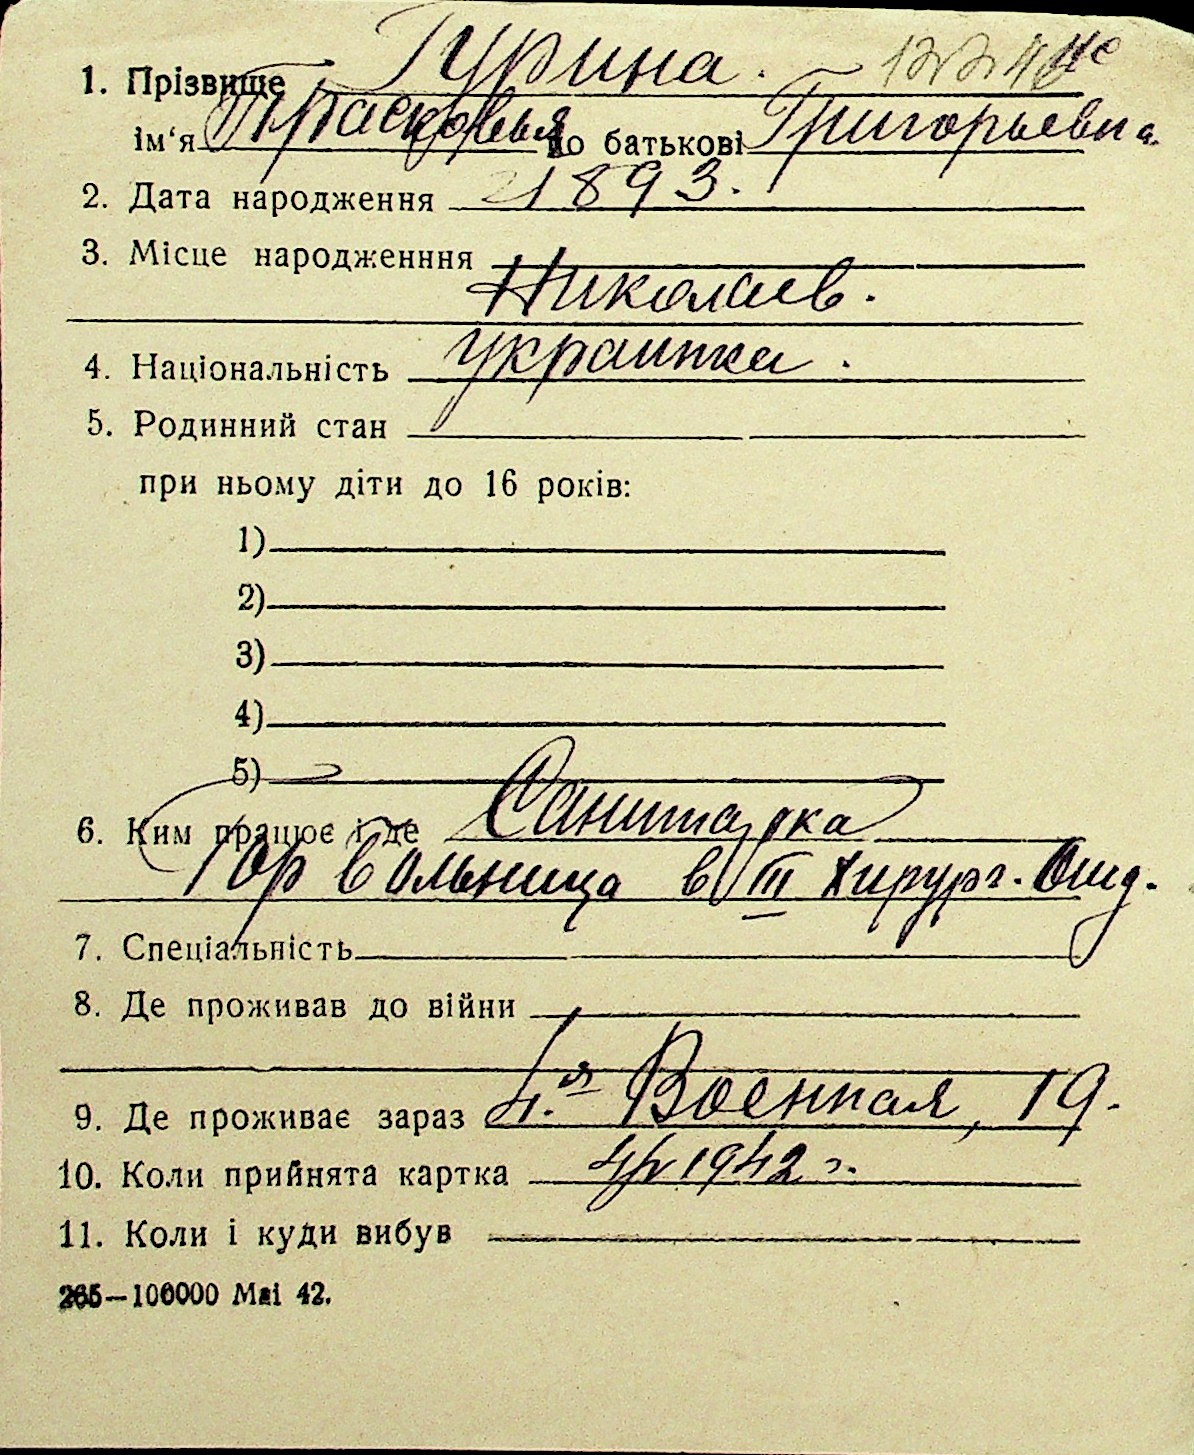 1. Прізвище Гурина.
ім‘я Прасковья по батькові Григорьевна
2. Дата народження 1893.
3. Місце народженння
Николаев.
4. Національність украинка.
5. Родинний стан
при ньому діти до 16 років:
1)
2)
3)
4)
5)
6. Ким працює і де Санитарка
Гор больница в III хирург. Отд.
7. Спеціальність
8. Де проживав до війни
9. Де проживає зараз 4.я Военная, 19.
10. Коли прийнята картка 1942 г.
11. Коли і куди вибув
265—100000 Маі 42.